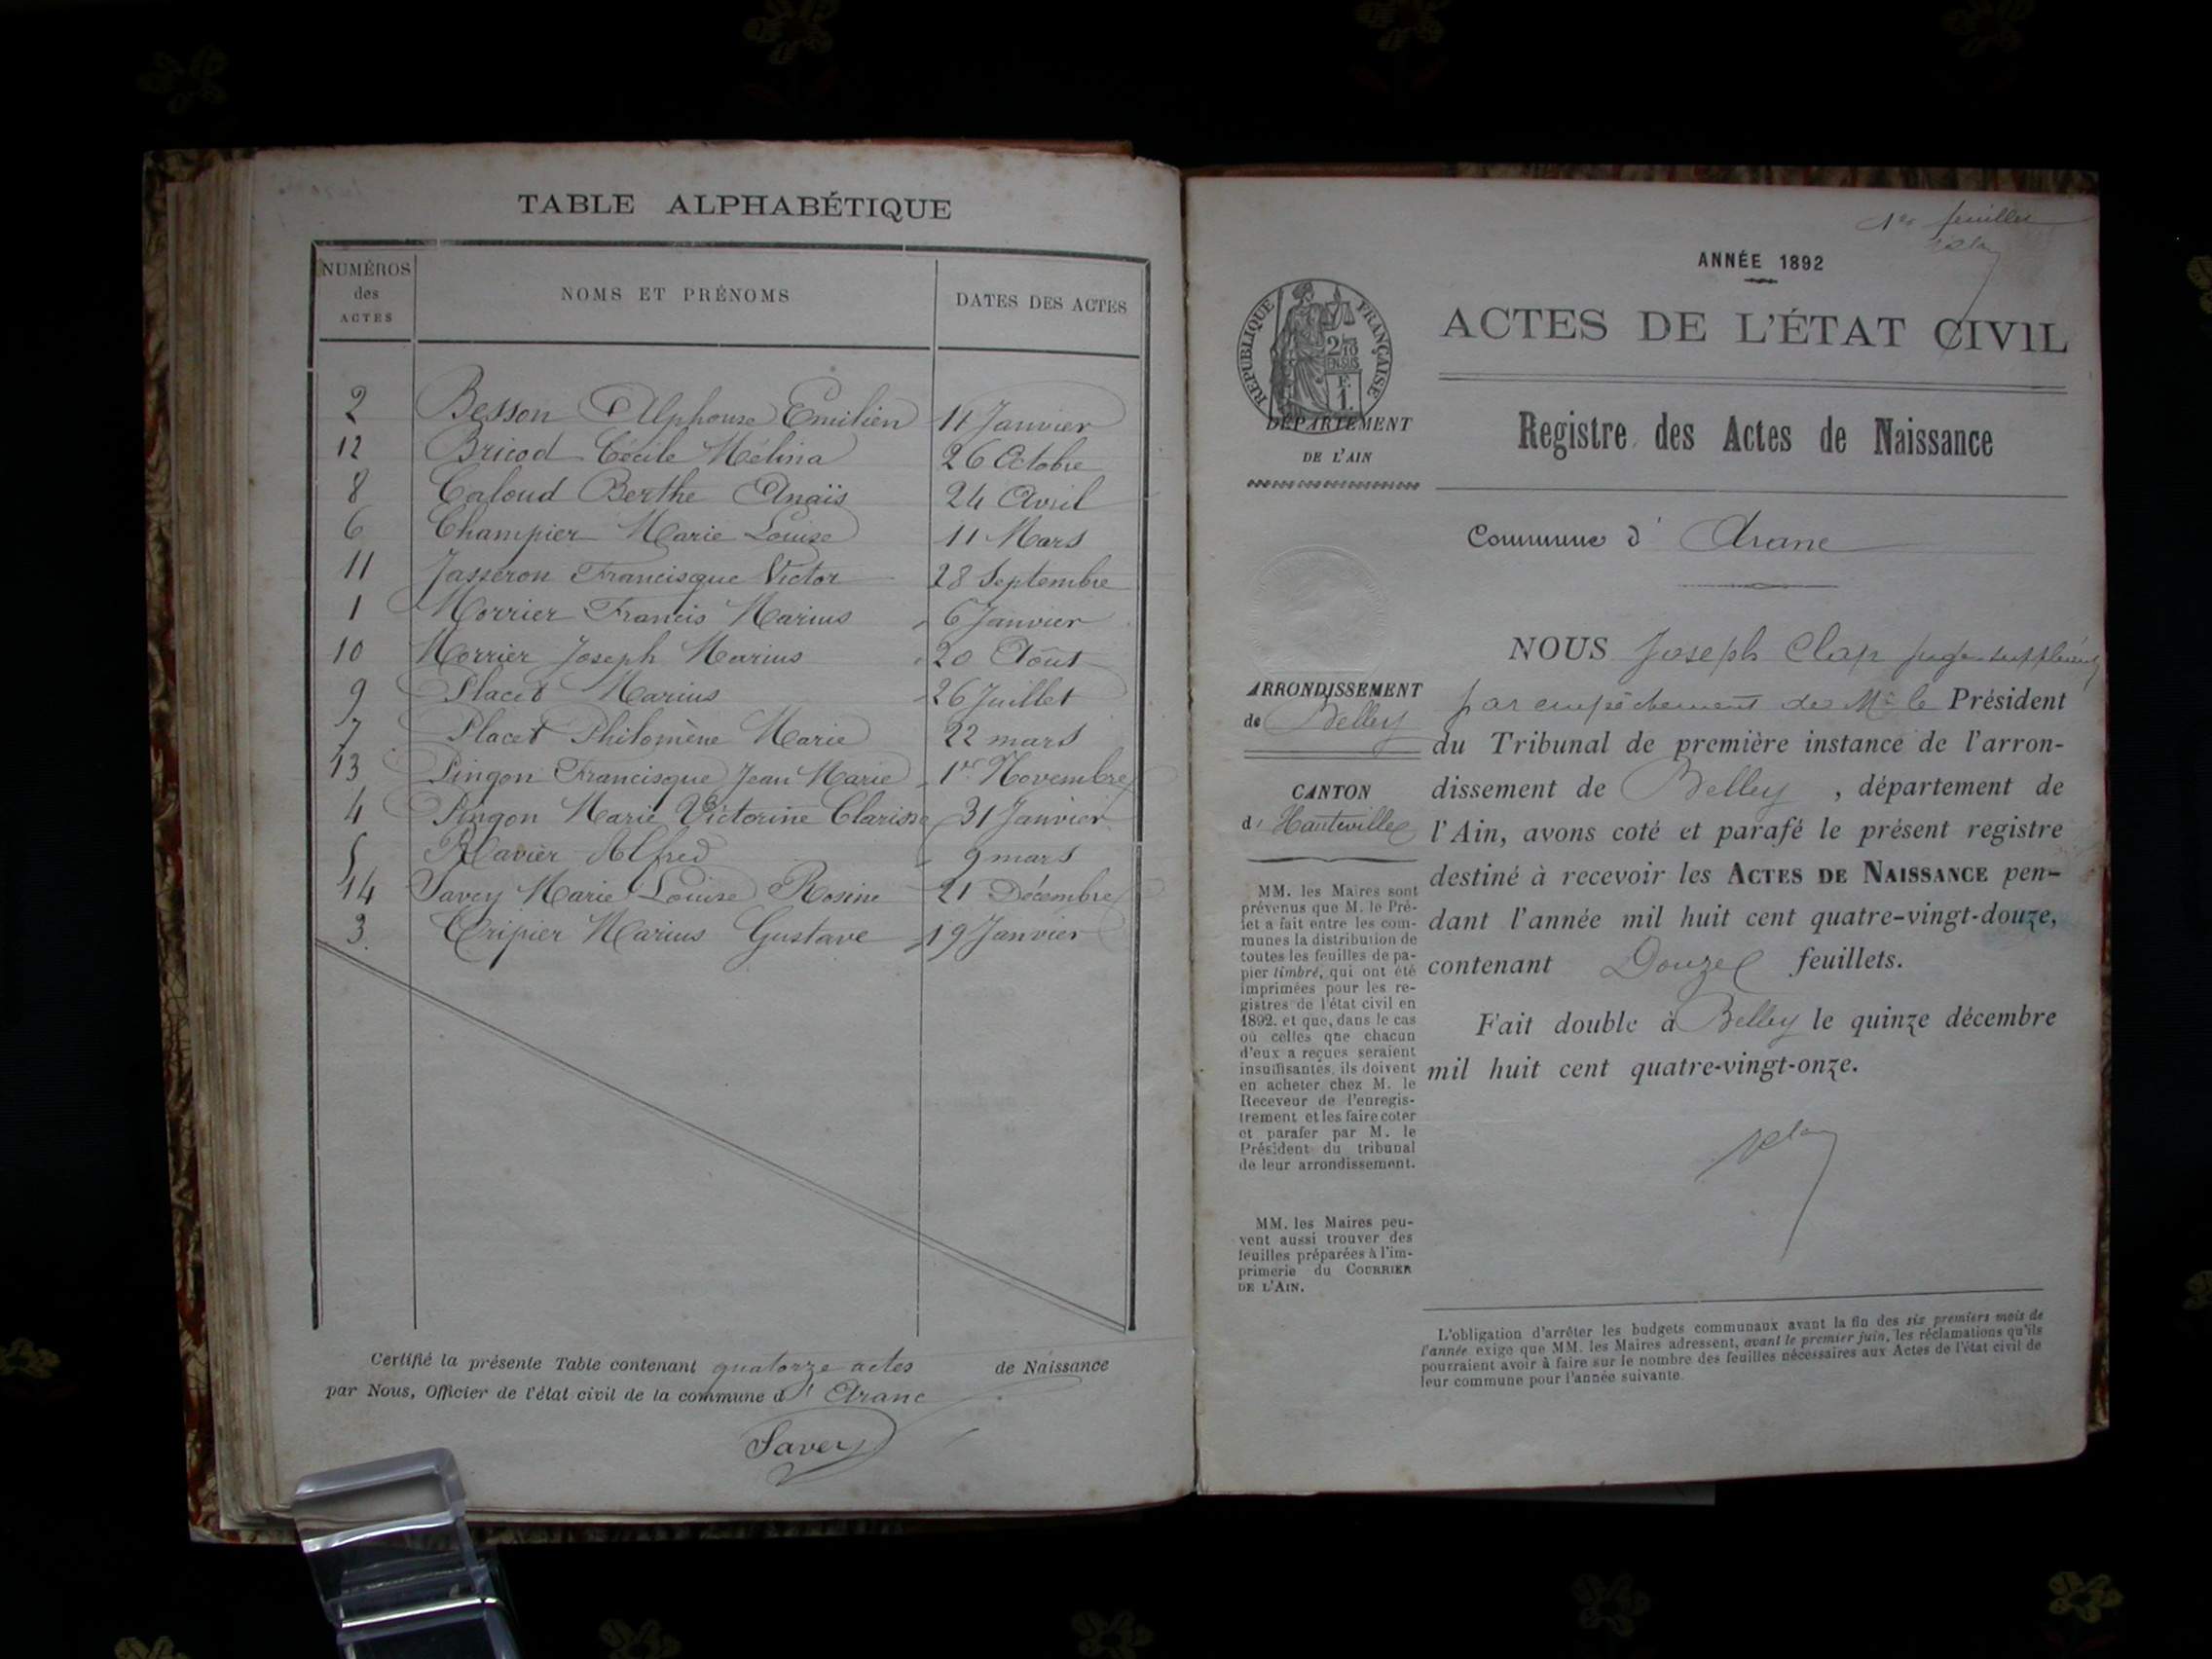 TABLE ALPHABÉTIQUE
NUMÉROS des ACTES
NOMS ET PRÉNOMS
DATES DES ACTES
2 Besson Alphonse Emilien 11 Janvier
12 Bricod Cécile Mélina 26 Octobre
8 Caloud Berthe Anaïs 24 Avril
6 Champier Marie Louise 11 Mars
11 Jasseron Francisque Victor 28 Septembre
1 Morrier Francis Marius 6 Janvier
10 Morrier Joseph Marius 20 Août
9 Placet Marius 26 Juillet
7 Placet Philomène Marie 22 mars
13 Pingon Francisque Jean Marie 1er Novembre
4 Pingon Marie Victorine Clarisse 31 Janvier
5 Ravier Alfred 9 mars
14 Savey Marie Louise Rosine 21 Décembre
3 Tripier Marius Gustave 19 Janvier
Certifié la présente Table contenant quatorze actes de Naissance
par Nous, Officier de l'état civil de la commune d' Aranc
Savey
1er feuillet
ANNÉE 1892
RÉPUBLIQUE FRANÇAISE
2/10 EN SUS
F. 1.
ACTES DE L'ÉTAT CIVIL
DÉPARTEMENT
DE L'AIN
Registre des Actes de Naissance
Commune d' Aranc
ARRONDISSEMENT
de Belley
CANTON
d' Hauteville
MM. les Maires sont
prévenus que M. le Pré-
fet a fait entre les com-
munes la distribution de
toutes les feuilles de pa-
pier timbré, qui ont été
imprimées pour les re-
gistres de l'état civil en
1892. et que, dans le cas
où celles que chacun
d'eux a reçues seraient
insuffisantes, ils doivent
en acheter chez M. le
Receveur de l'enregis-
trement et les faire coter
et parafer par M. le
Président du tribunal
de leur arrondissement.
MM. les Maires peu-
vent aussi trouver des
feuilles préparées à l'im-
primerie du COURRIER
DE L'AIN.
NOUS Joseph Clap juge suppléant
par empêchement de Mr le Président
du Tribunal de première instance de l'arron-
dissement de Belley , département de
l'Ain, avons coté et parafé le présent registre
destiné à recevoir les ACTES DE NAISSANCE pen-
dant l'année mil huit cent quatre-vingt-douze,
contenant Douze feuillets.
Fait double à Belley le quinze décembre
mil huit cent quatre-vingt-onze.
L'obligation d'arrêter les budgets communaux avant la fin des six premiers mois de
l'année exige que MM. les Maires adressent, avant le premier juin, les réclamations qu'ils
pourraient avoir à faire sur le nombre des feuilles nécessaires aux Actes de l'état civil de
leur commune pour l'année suivante.